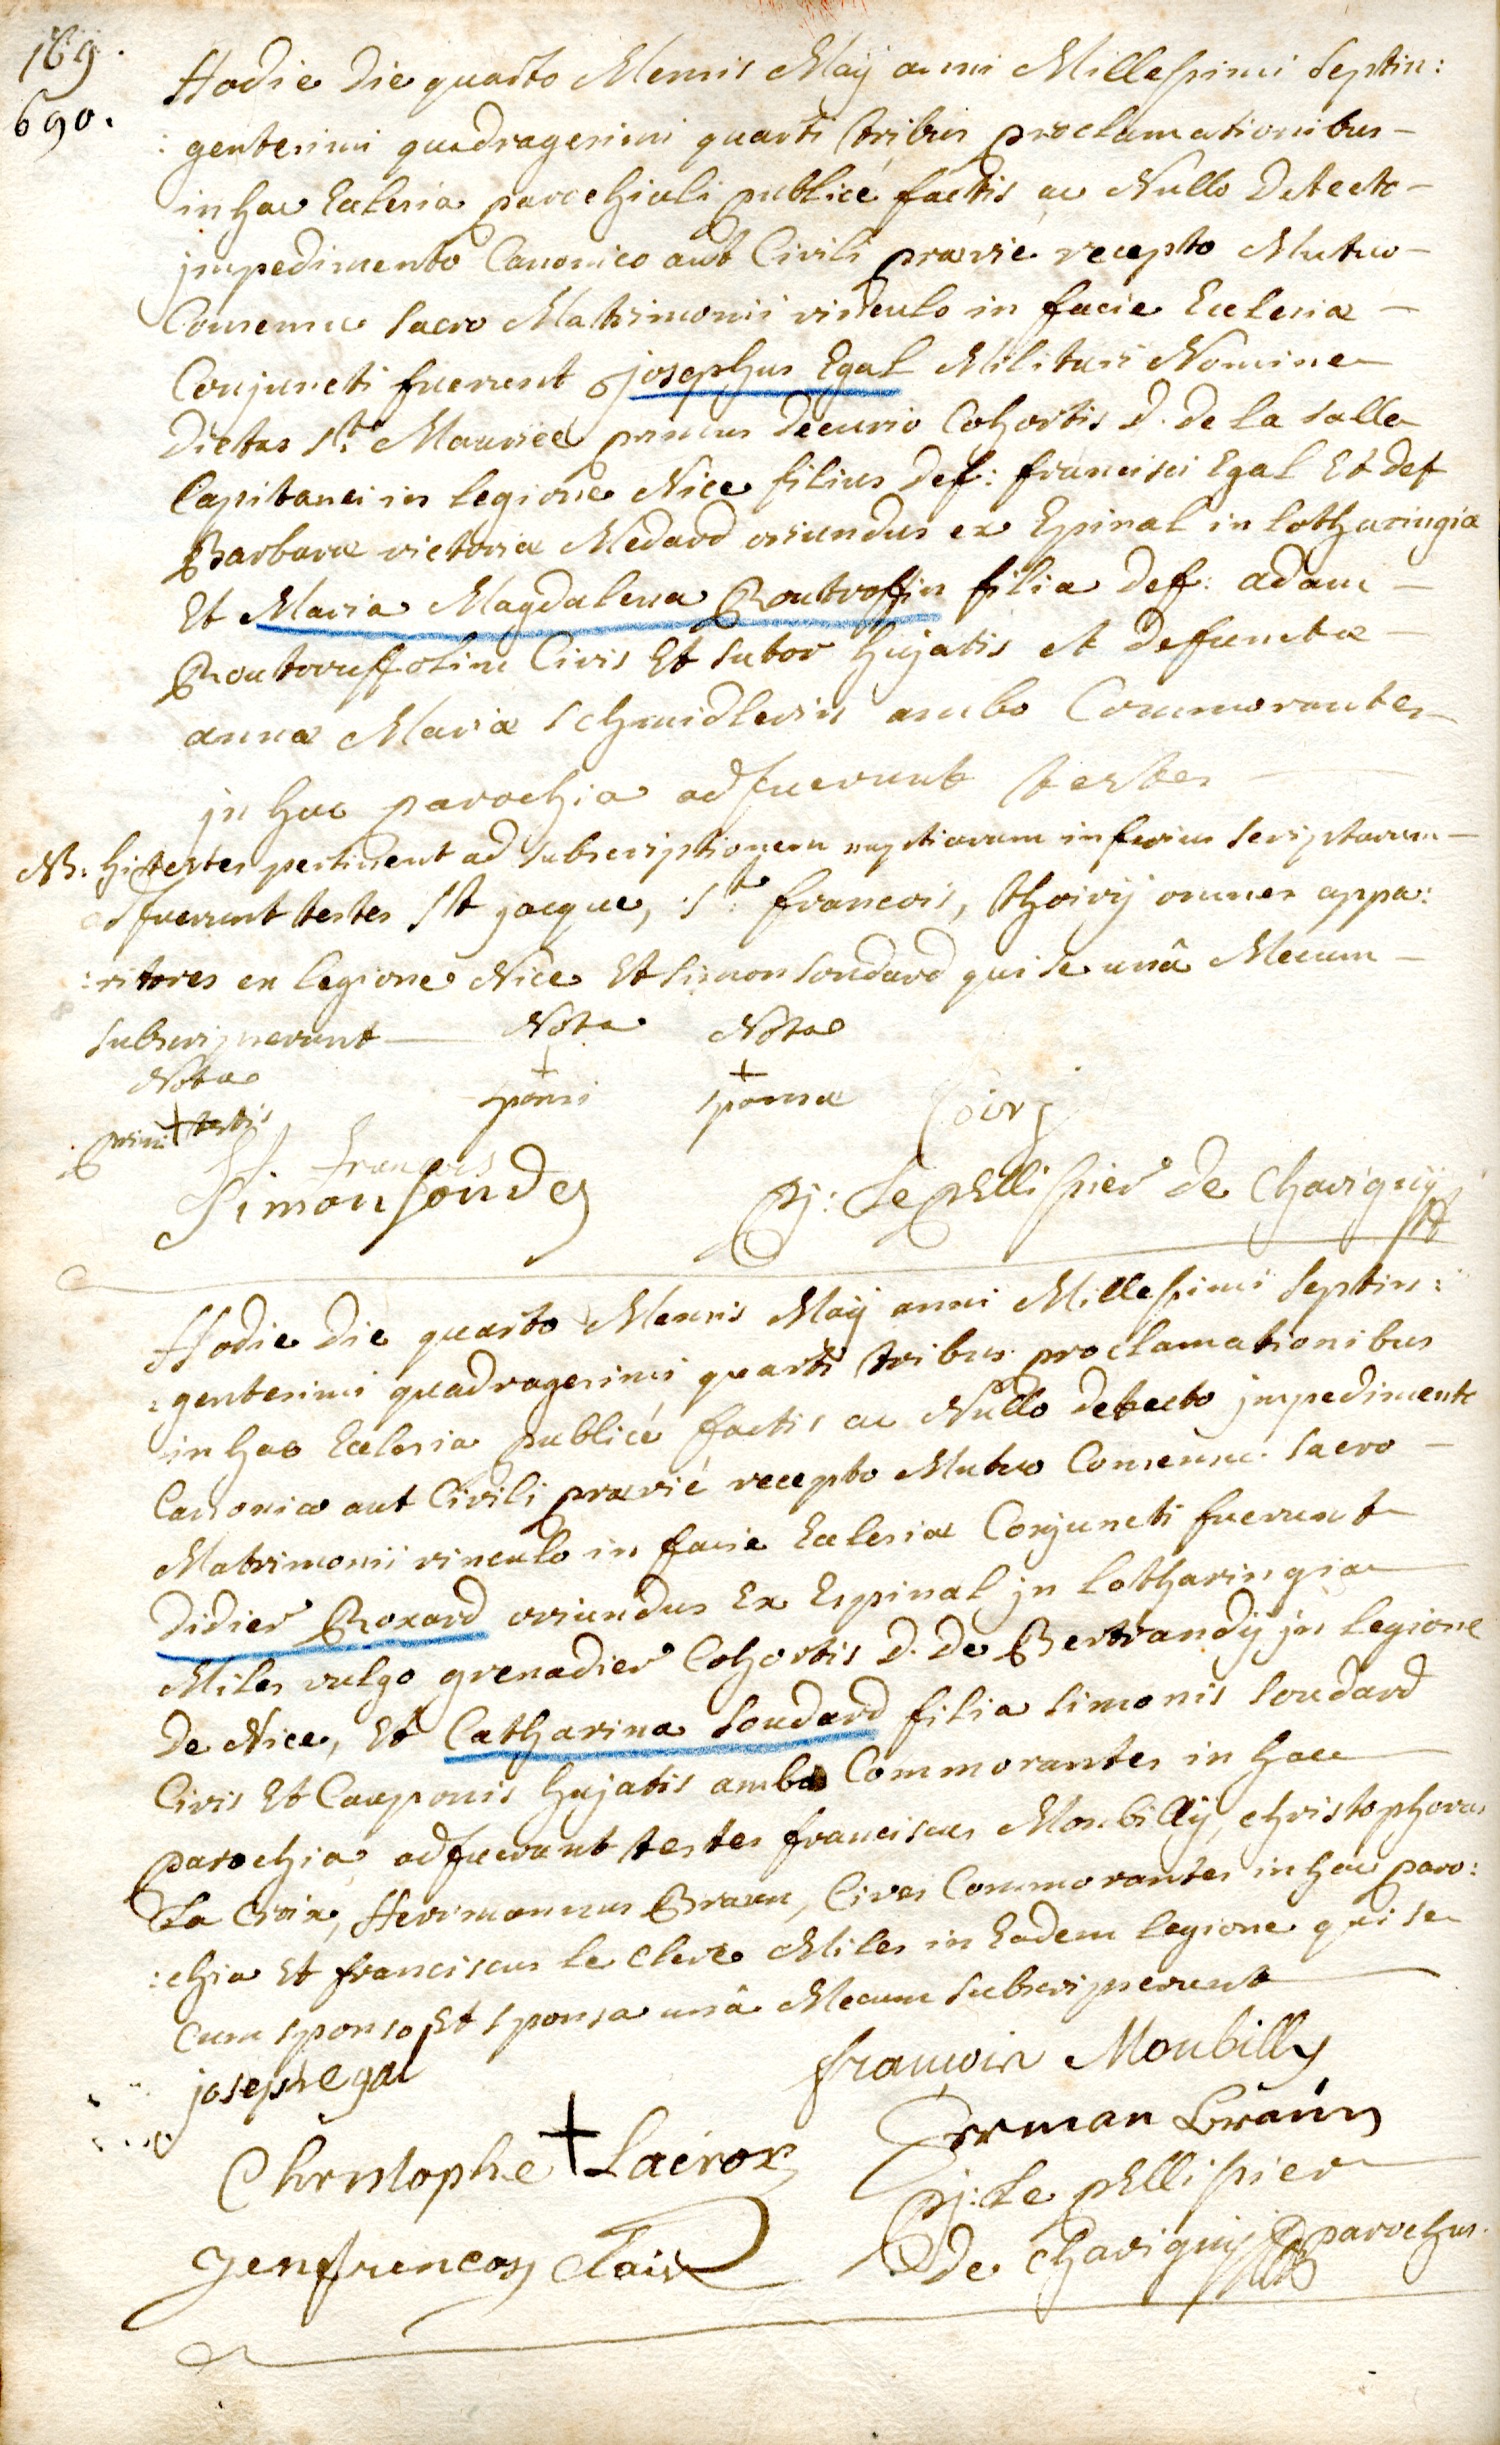 169.
690.
Hodie Die quarto Mensis Maÿ anni Millesimi Septin:
: gentesimi quadragesimi quarti tribus proclamationibus –
in hac Ecclesia parochiali publicé factis ac Nullo Detecto –
jmpedimento Canonico aut Civili prævie recepto Mutuo –
Consensu Sacro Matrimonii vinculo in facie Ecclesiæ –
Conjuncti fuerunt josephus Egal Militari Nomine
Dictus St. Maurice primus Decurio Cohortis D. De la Salle
Capitanei in legione Nice filius Def: francisci Egal Et Def
Barbaræ victoriæ Medard oriundus ex Epinal in lotharingia
Et Maria Magdalena Routroffin filia Def: adam –
Routoruff olim Civis Et Sutor hujatis et Defunctæ –
annæ Mariæ Schmidlerin ambo Commorantes –
jn hac parochia adfuerunt testes –
NB. hi testes pertinent ad Subscriptionem nuptiarum inferius Scriptarum –
adfuerunt testes St jacque, St. francois, thoirÿ omnes appa:
:ritores en legione Nice Et Simon Soudard qui se unâ Mecum –
Subscripserunt — Nota Nota
Nota + +
primi + testis sponsi sponsæ Toiry
St. François
Simon Soudes pj: Le pellissier de Chavignÿ
Hodie Die quarto Mensis Maÿ anni Millesimi Septin:
: gentesimi quadragesimi quarti tribus proclamationibus
in hac Ecclesia publicé factis ac Nullo detecto jmpedimento
Canonico aut Civili prævié recepto Mutuo Consensu Sacro –
Matrimonii vinculo in facie Ecclesiæ Conjuncti fuerunt
Didier Roxard oriundus Ex Espinal jn lotharingia
Miles vulgo grenadier Cohortis D. De Bertrandÿ jn legione
De Nice, Et Catharina Soudard filia Simonis Soudard
Civis Et Cauponis hujatis ambo Commorantes in hac
parochia adfuerunt testes franciscus Monbillÿ, christophorus
La Croix, Herrmannus Braun, Cives Commorantes in hac paro:
:chia Et franciscus le Clerc Miles in Eadem legione qui se
Cum sponso Et sponsa unâ Mecum Subscripserunt
joseph egal françois Monbilly
Christophe + Lacrox Herman Braün
Jenfrencoy Clair pj: Le pellissier
de Chavignÿ parochus.